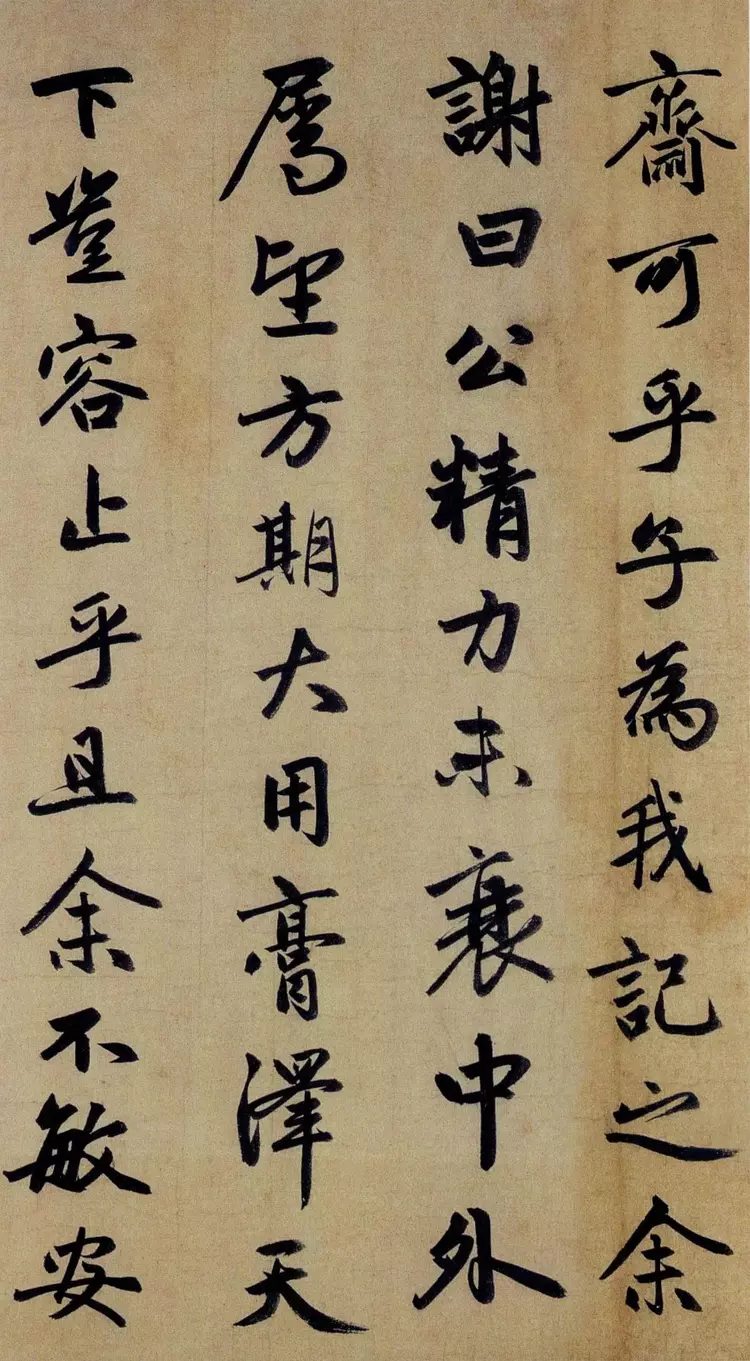 齋可乎子為我記之余
謝曰公精力未衰中外
屬望方期大用膏澤天
下豈容止乎且余不敏安